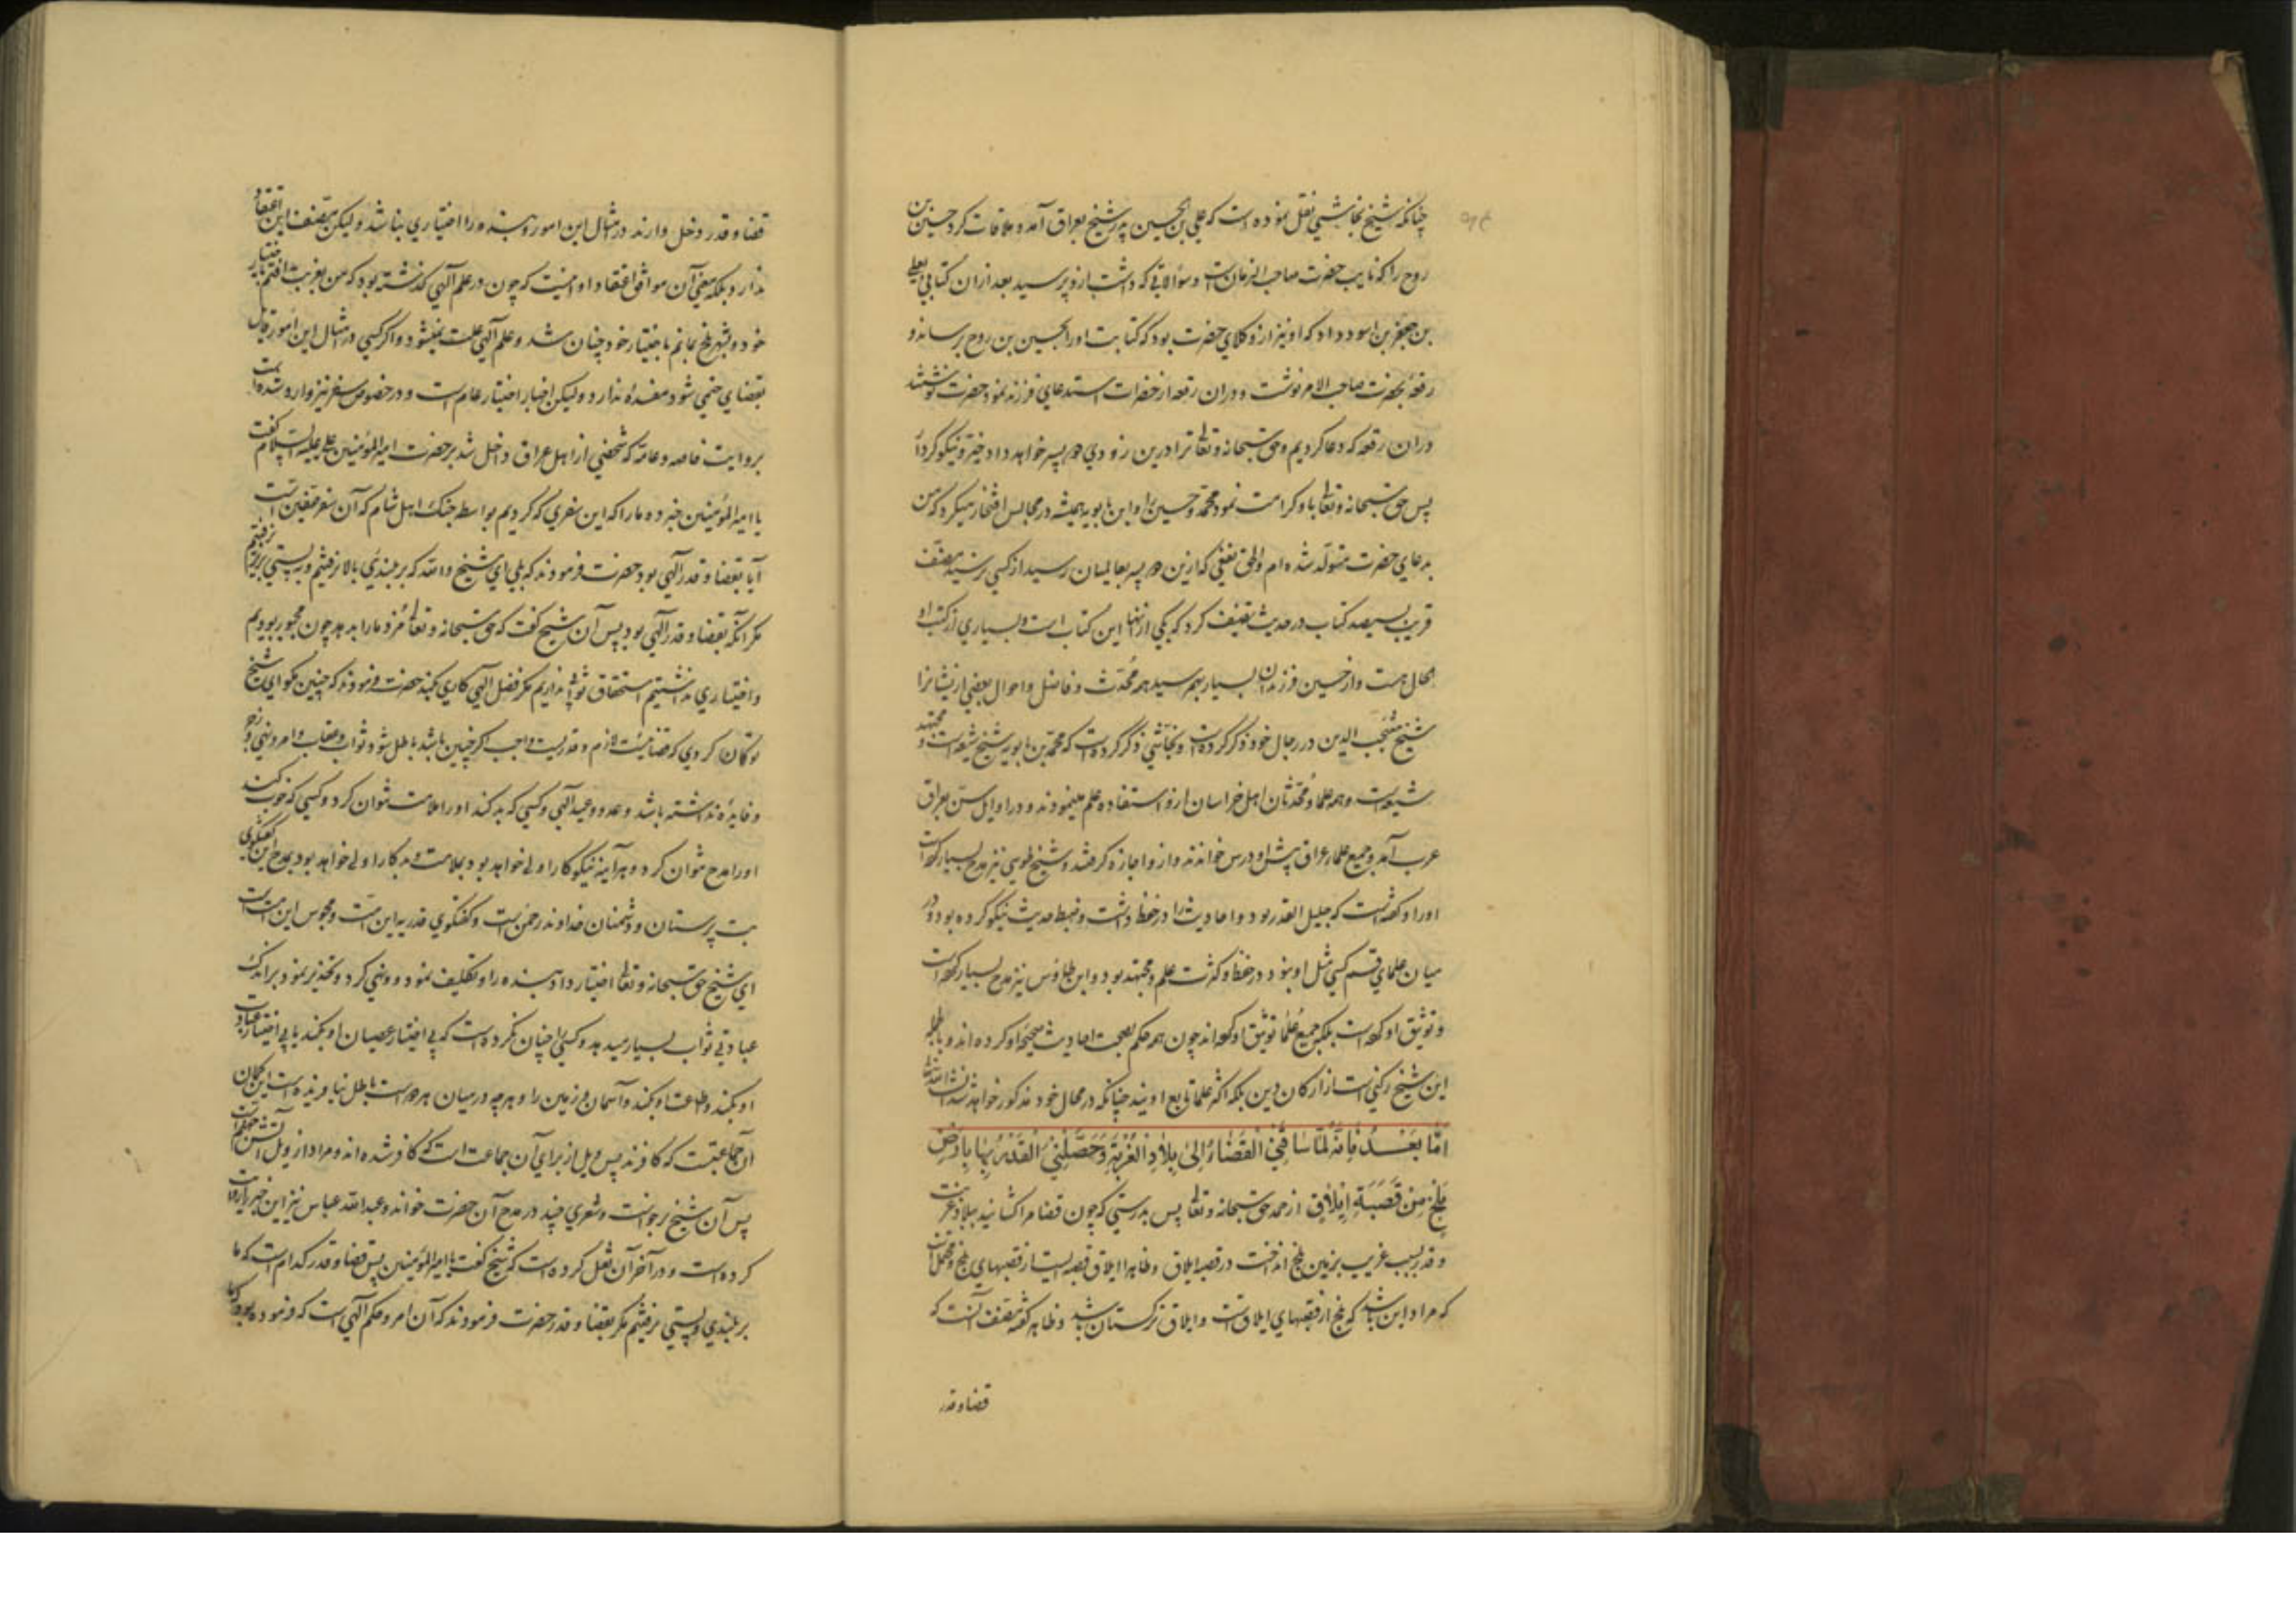 چنانکه شیخ نجاشی نقل نموده است که علی بن الحسین پدر شیخ بعراق آمده ملاقات کرد حسین بن
روح را که نایب حضرت صاحب الزمان است و سؤالاتی که داشت ازو پرسید بعد ازان کتابی بعلی
بن جعفر بن اسود داد که او نیز از وکلای حضرت بود که کتابت او را بحسین بن روح برساند و
رقعهٔ بحضرت صاحب الامر نوشت و دران رقعه از حضرات استدعای فرزند نمود حضرت نوشتند
دران رقعه که دعا کردیم و حق سبحانه و تعالی ترا درین زودی دو پسر خواهد داد خیّر و نیکوکردار
پس حق سبحانه و تعالی باو کرامت نمود محمد و حسین را و ابن بابویه همیشه در مجالس افتخار میکرد که من
بدعای حضرت متولّد شده ام و الحق نفعی که ازین دو پسر بعالمیان رسید از کسی نرسید مصنف
قریب بسیصد کتاب در حدیث تصنیف کرد که یکی از آنها این کتاب است و بسیاری از کتب او
بحال هست و از حسین فرزندان بسیار بهم رسید همه محدّث و فاضل و احوال بعضی از یشانرا
شیخ منتجب الدین در رجال خود ذکر کرده است و نجاشی ذکر کرده است که محمد بن بابویه شیخ شیعه است و مجتهد
شیعه است و همه علما و محدّثان اهل خراسان ازو استفاده علم مینمودند و در اوایل سنّ بعراق
عرب آمد و جمیع علماء عراق پیش او درس خواندند و ازو اجازه گرفتند و شیخ طوسی نیز مدح بسیار کرده است
او را و گفته است که جلیل القدر بود و احادیث را در حفظ داشت و ضبط حدیث نیکو کرده بود و در
میان علمای قم کسی مثل او نبود در حفظ و کثرت علم و مجتهد بود و ابن طاوس نیز مدح بسیار کرده است
و توثیق او کرده است بلکه جمیع علما توثیق او کرده اند چون همه حکم بصحت احادیث صحیح او کرده اند و بالجمله
این شیخ رکنی است از ارکان دین بلکه اکثر علما تابع اویند چنانکه در محال خود مذکور خواهد شد انشاء الله
اَمّا بَعْدُ فَاِنَّهُ لَمّا ساقَنِی الْقَضاءُ اِلیٰ بِلادِ الْغُرْبَةِ وَحَصَّلَنِی الْقَدَرُ بِها بِاَرْضِ
بَلْخَ مِنْ قَصَبَةِ اِیلاقَ از حمد حق سبحانه و تعالی پس بدرستی که چون قضا مرا کشانید ببلاد غربت
و قدر بسبب غریب بزمین بلخ انداخت در قصبه ایلاق و ظاهرا ایلاق قصبه ایست از قصبهای بلخ و محتمل است
که مراد این باشد که بلخ از قصبهای ایلاق است و ایلاق ترکستان باشد و ظاهر گفته مصنف آنست که
قضا و قدر
قضا و قدر دخل دارند در مثال این امور و بنده را اختیاری نباشد و لیکن مصنف این اعتقاد
ندارد بلکه معنی آن موافق اعتقاد او اینست که چون در علم آلهی گذشته بود که من بغربت افتم باختیار
خود و بشهر بلخ بمانم باختیار خود چنان شد و علم آلهی علت نمیشود و اگر کسی در مثال این امور قائل
بقضای حتمی شود مفسدهٔ ندارد و لیکن اخبار اختیار عام است و در خصوص سفر نیز وارد شده است
بروایت خاصه و عامّه که شخصی از اهل عراق داخل شد بر حضرت امیر المؤمنین علی علیه السلام گفت
یا امیر المؤمنین خبر ده ما را که این سفری که کردیم بواسطه جنگ اهل شام که آن سفر صفین است
آیا بقضا و قدر آلهی بود حضرت فرمودند که بلی ای شیخ والله که بر بلندی بالا نرفتیم و به پستی بزیر نرفتیم
مگر آنکه بقضا و قدر آلهی بود پس آن شیخ گفت که حق سبحانه و تعالی مزد ما را بدهد چون مجبور بودیم
و اختیاری نداشتیم استحقاق ثواب نداریم مگر فضل آلهی کاری بکند حضرت فرمودند که چنین مگو ای شیخ
تو گمان کردی که قضائیست لازم و قدریست واجب اگر چنین باشد باطل شود ثواب و عقاب و امر و نهی و زجر
و فایده نداشته باشد وعد و وعید آلهی و کسی که بد کند او را ملامت نتوان کرد و کسی که خوب کند
او را مدح نتوان کرد و هر آینه نیکوکار اولی خواهد بود بملامت و بدکار اولی خواهد بود بمدح این گفتگوی
بت پرستان و دشمنان خداوند رحمن است و گفتگوی قدریه این امّت و مجوس این امّت است
ای شیخ حق سبحانه و تعالی اختیار داد بنده را و تکلیف نمود و نهی کرد و تحذیر نمود بر اندک
عبادتی ثواب بسیار میدهد و کسی را چنان نکرده است که بی اختیار عصیان او بکند یا بی اختیار عبادت
او بکند و طاعت او بکند و آسمان و زمین را و هرچه در میان هر دو است باطل نیافریده است این گمان
آن جماعتیست که کافرند پس ویل از برای آن جماعت است که کافر شده اند و مراد از ویل آتش جهنم است
پس آن شیخ برخواست و شعری چند در مدح آن حضرت خواند و عبد الله عباس نیز این خبر را روایت
کرده است و در آخر آن نقل کرده است که شیخ گفت یا امیر المؤمنین پس قضا و قدر کدام است که ما
بر بلندی و پستی نرفتیم مگر بقضا و قدر حضرت فرمودند که آن امر و حکم آلهی است که فرموده بود